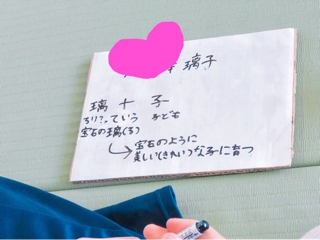 璃子
璃 + 子
るり?っていう 子ども
宝石の璃(る)
→宝石のように
美しい(きれい)な子に育つ